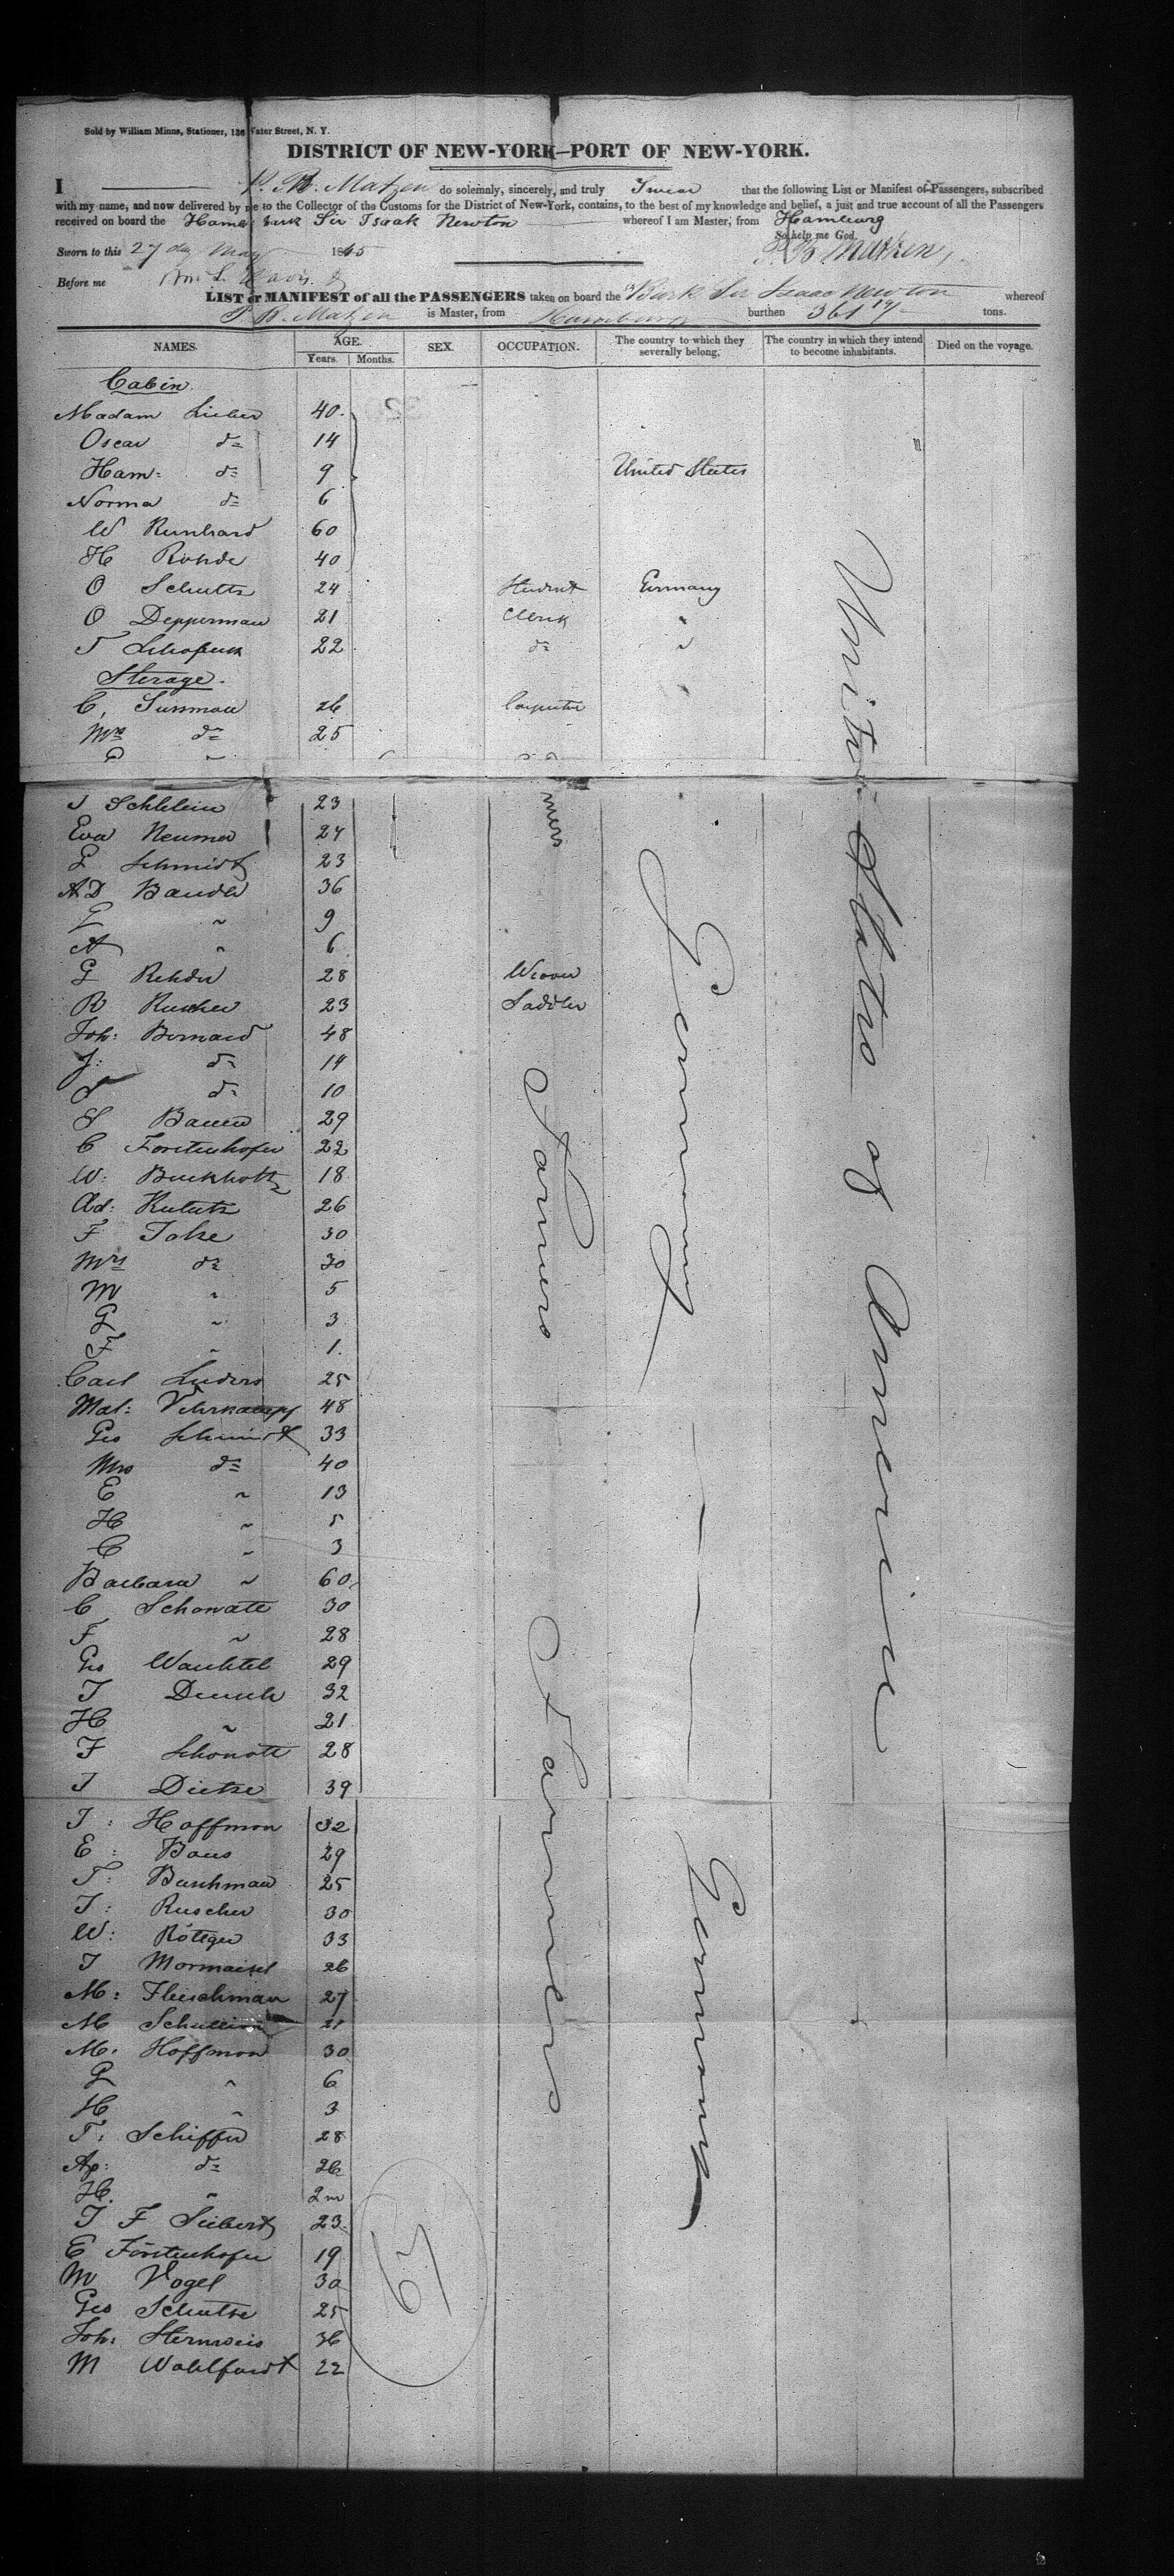 Sold by William Minns, Stationer, 136 Water Street, N. Y.
DISTRICT OF NEW-YORK—PORT OF NEW-YORK.
I P. B. Matzen do solemnly, sincerely, and truly Swear that the following List or Manifest of Passengers, subscribed
with my name, and now delivered by me to the Collector of the Customs for the District of New-York, contains, to the best of my knowledge and belief, a just and true account of all the Passengers
received on board the Hamb Bark Sir Isaak Newton whereof I am Master, from Hamburg
So help me God.
Sworn to this 27 day May 1845 P. B. Matzen
Before me
LIST or MANIFEST of all the PASSENGERS taken on board the Bark Sir Isaac Newton whereof
P. B. Matzen is Master, from Hamburg burthen 361 tons.
NAMES. AGE. Years. Months. SEX. OCCUPATION. The country to which they severally belong. The country in which they intend to become inhabitants. Died on the voyage.
Cabin.
Madam Lieber 40.
Oscar do 14
Ham: do 9 United States
Norma do 6
W 60
H Rohde 40
O Schultz 24 Student Germany
O Depperman 21 Clerk "
T 22 do "
Sterage.
C. Sussman 26 Carpenter
Mrs do 25
United States of America
J Schlein 23
Eva Neumer 24
G Schmidt 23
AD Bauder 36
G " 9
A " 6
G Rehder 28 Weaver
R Ruscher 23 Saddler
Joh: Bernard 48
J: do 14
S do 10
S Bauer 29
C Forstenhofer 22
W: Buckholtz 18
Ad: Kulutz 26
F Toke 30
Mrs do 30
M " 5
G " 3
F " 1.
Carl Luders 25
Mat: Vehrkampf 48
Geo Schmidt 33
Mrs do 40
E " 13
H " 5
C " 3
Barbara " 60
C Schonate 30
F " 28
Geo Wachtel 29
T 32
H " 21
F Schonatt 28
T Dietze 39
Farmers
Germany
T: Hoffman 32
E: Baus 29
T: Buschman 25
T: Ruscher 30
W: Röttger 33
T Mormaisel 26
M: Fleischman 27
M 21
M. Hoffman 30
G " 6
H " 3
T: Schiffer 28
Ap: do 26
H. " 2m
T F Siebert 23.
E Förstenhofer 19
M Vogel 30
Geo Schultze 25
Joh: Sternweis 36
M Wohlfardt 22
Farmers
Germany
67